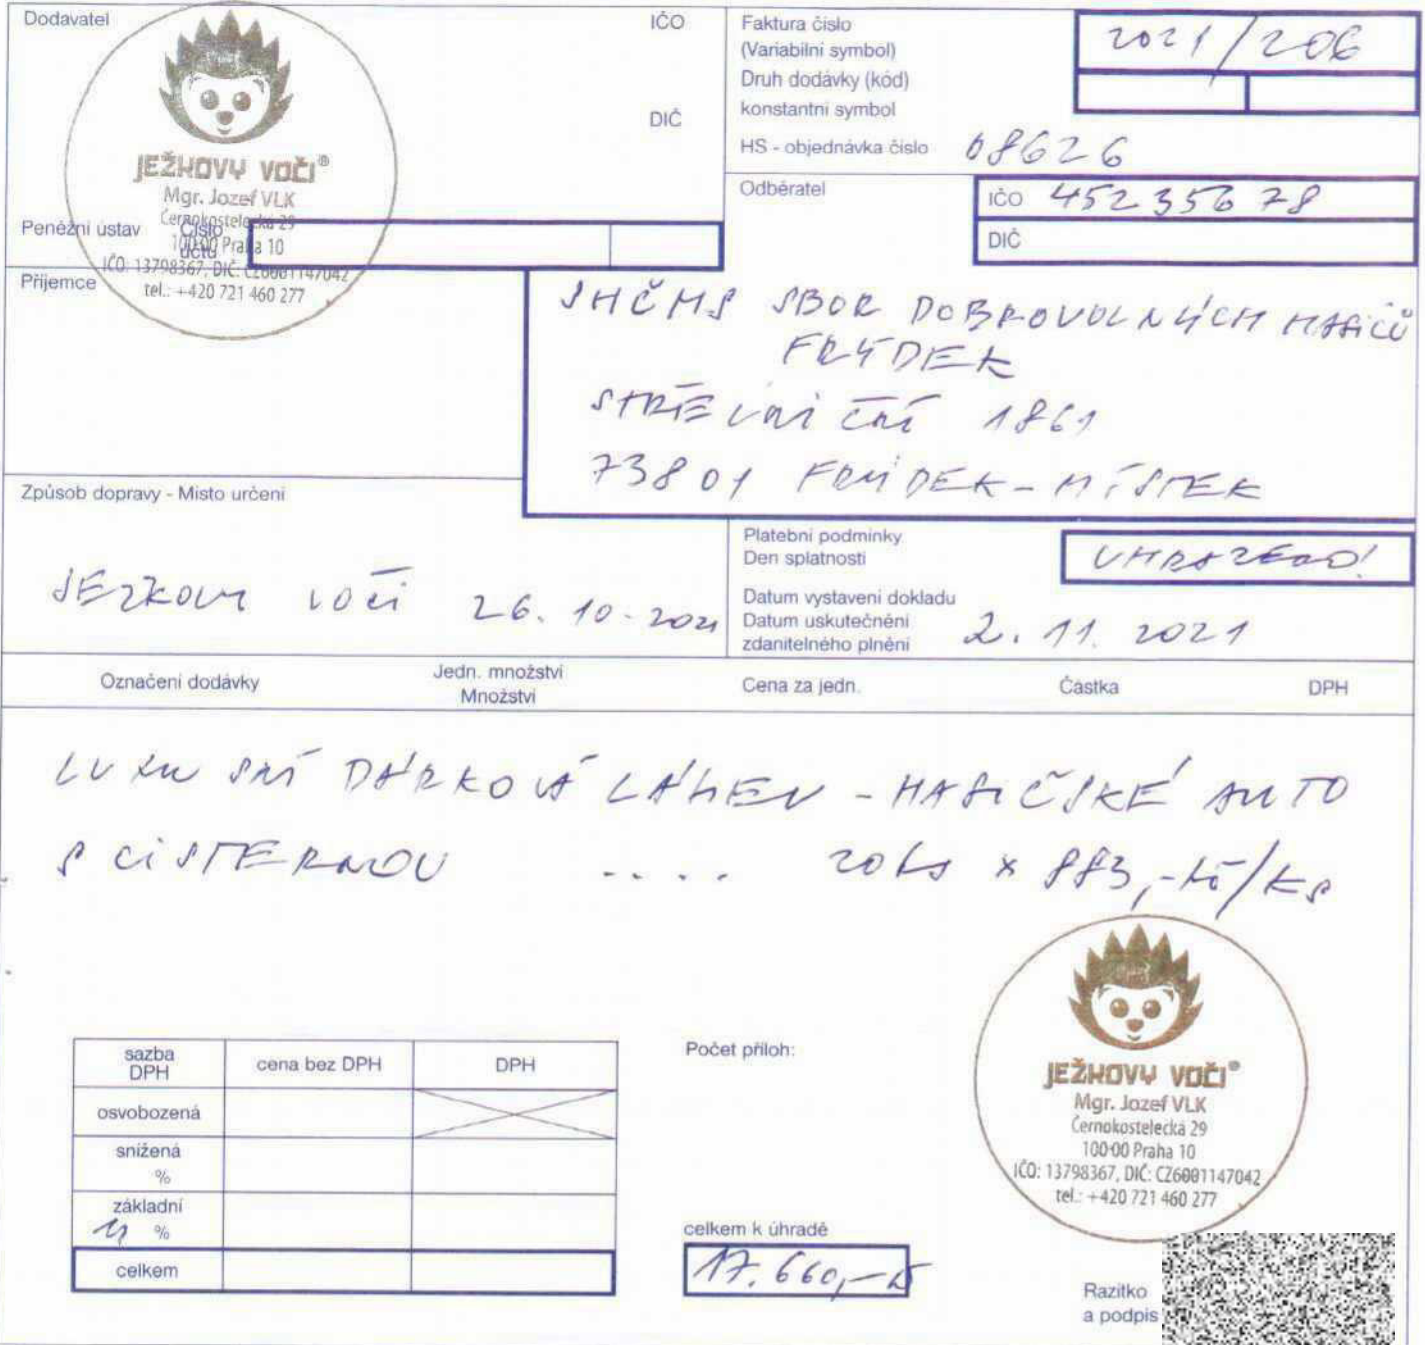 Dodavatel
IČO
DIČ
JEŽKOVY VOČI®
Mgr. Jozef VLK
Černokostelecká 29
100 00 Praha 10
IČO: 13798367, DIČ: CZ6001147042
tel.: +420 721 460 277
Peněžní ústav
Číslo
účtu
Příjemce
Faktura číslo
(Variabilní symbol)
2021/206
Druh dodávky (kód)
konstantní symbol
HS - objednávka číslo 08626
Odběratel
IČO 452 356 78
DIČ
SHČMS SBOR DOBROVOLNÝCH HASIČŮ
FRÝDEK
STŘELNIČNÍ 1861
73801 FRÝDEK-MÍSTEK
Způsob dopravy - Místo určení
JEŽKOVY VOČI 26. 10. 2021
Platební podmínky
Den splatnosti
UHRAZENO!
Datum vystavení dokladu
Datum uskutečnění
zdanitelného plnění
2. 11. 2021
Označení dodávky
Jedn. množství
Množství
Cena za jedn.
Částka
DPH
LUXUSNÍ DÁRKOVÁ LÁHEV - HASIČSKÉ AUTO
S CISTERNOU .... 20ks x 883,-Kč/ks
sazba
DPH
cena bez DPH
DPH
osvobozená
snížená
%
základní
21 %
celkem
Počet příloh:
celkem k úhradě
17.660,-Kč
JEŽKOVY VOČI®
Mgr. Jozef VLK
Černokostelecká 29
100 00 Praha 10
IČO: 13798367, DIČ: CZ6001147042
tel.: +420 721 460 277
Razítko
a podpis